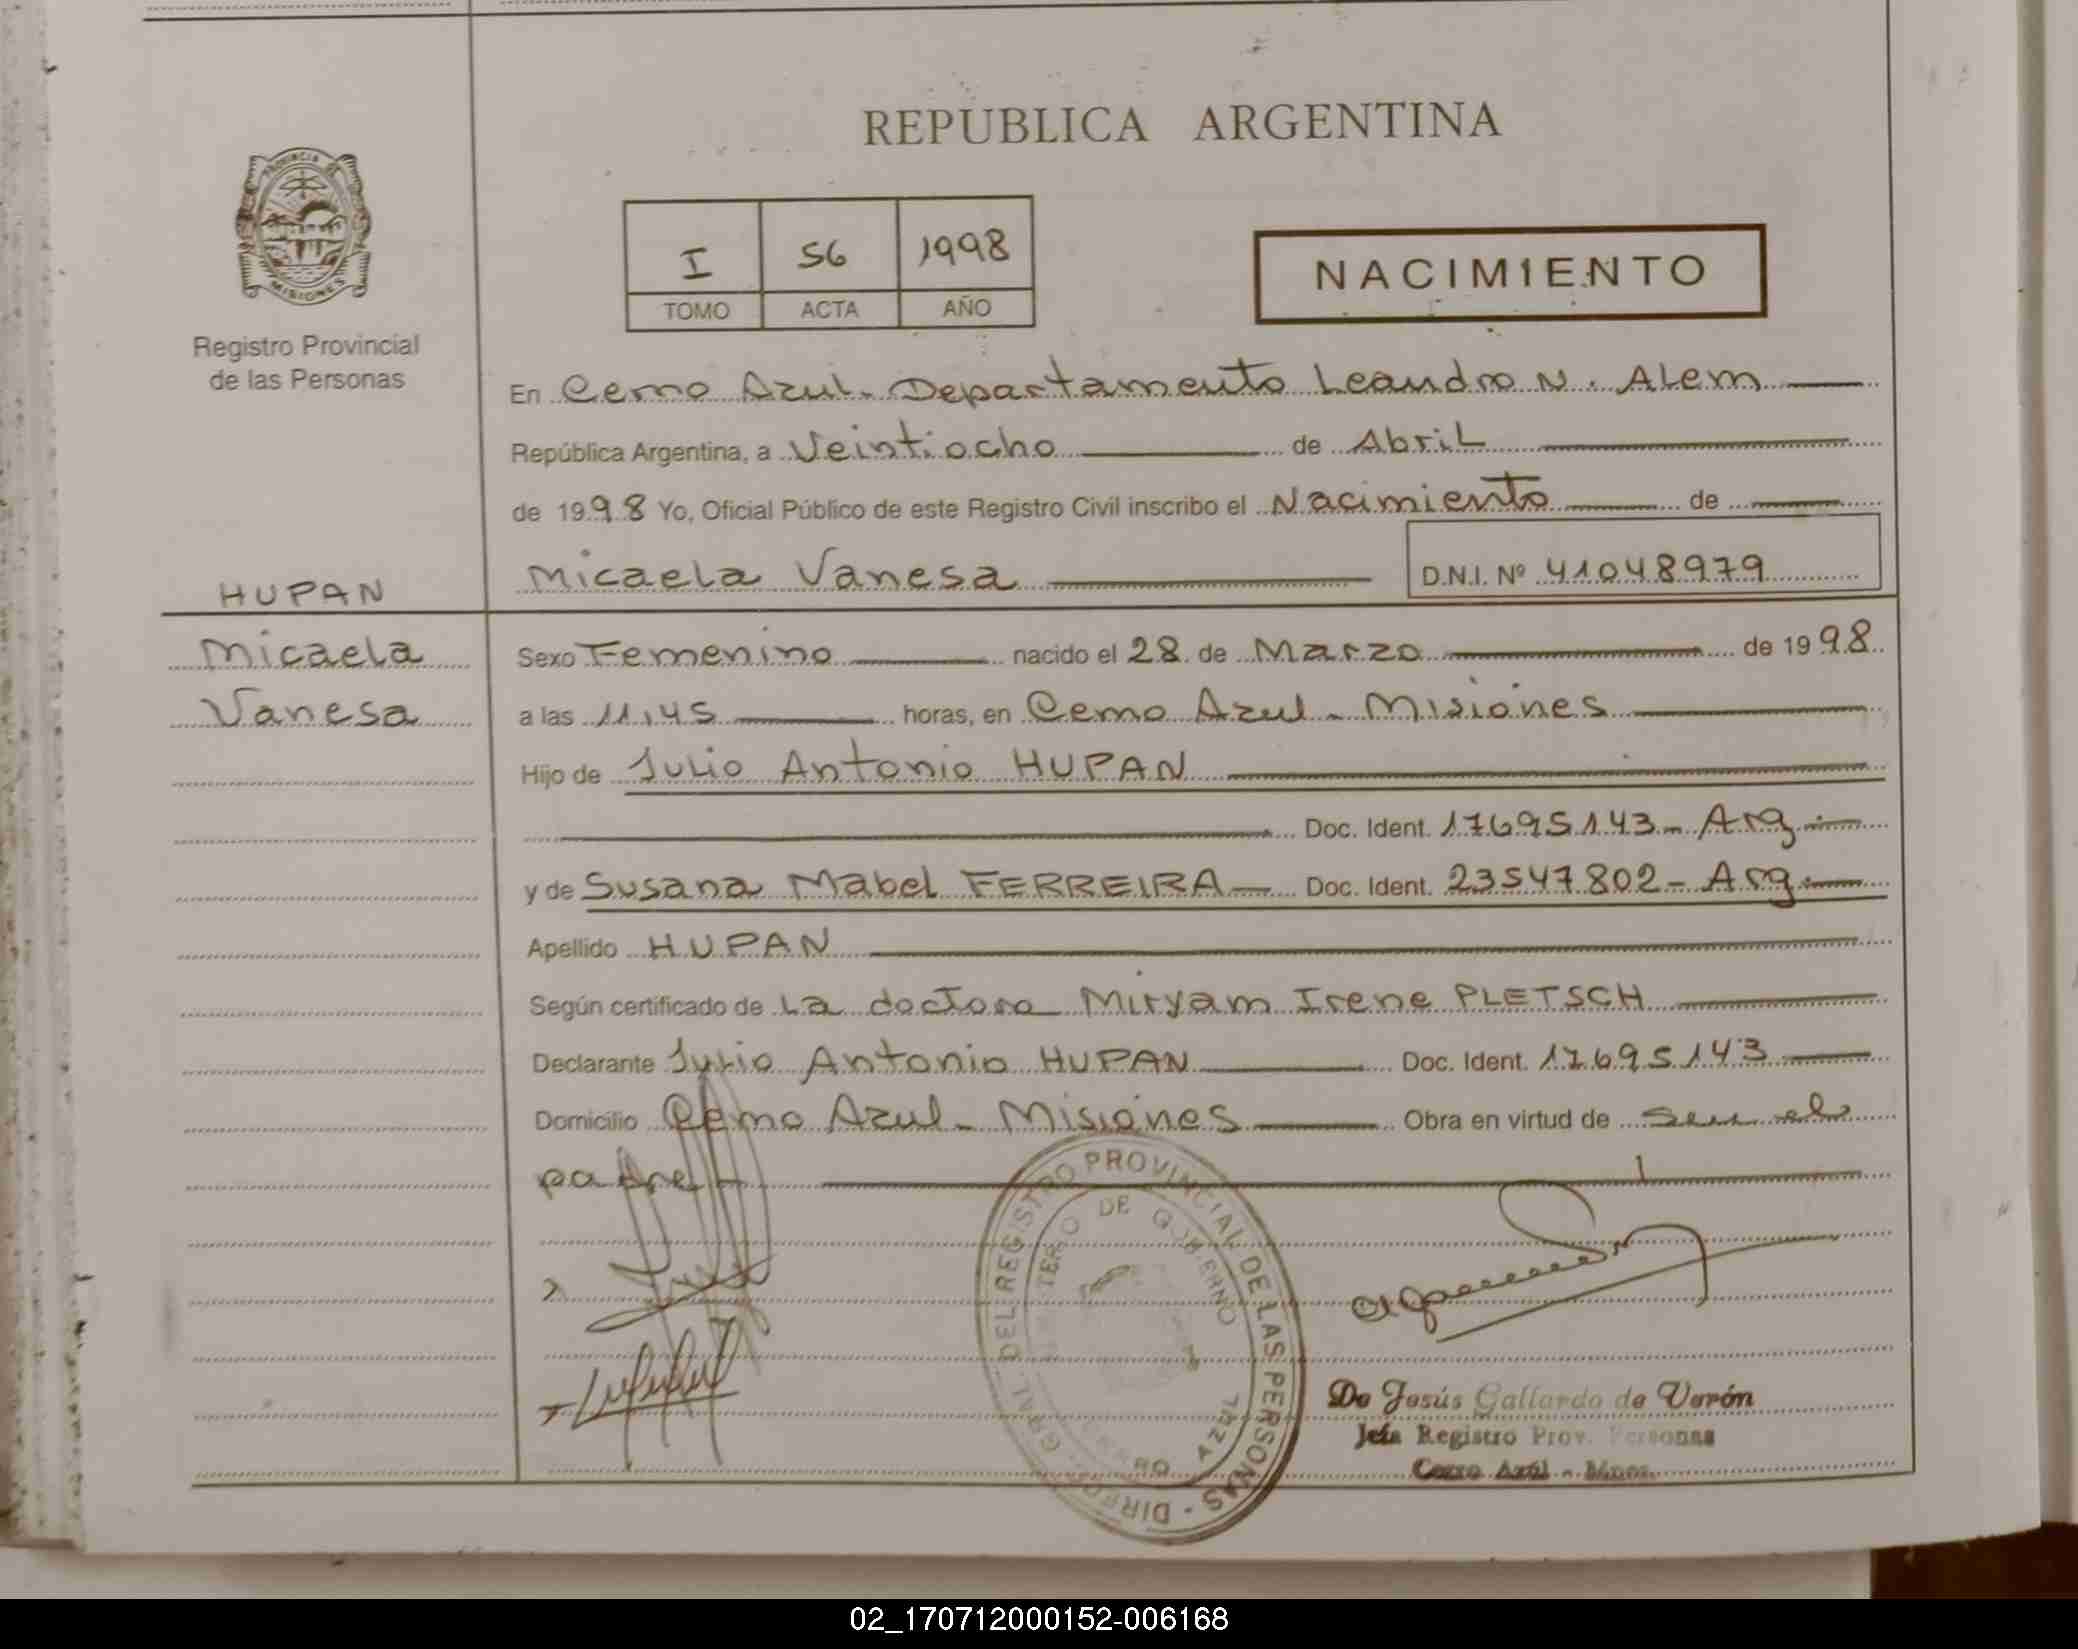 REPUBLICA ARGENTINA
PROVINCIA DE MISIONES
Registro Provincial
de las Personas
I 56 1998
TOMO ACTA AÑO
NACIMIENTO
En Cerro Azul - Departamento Leandro N. Alem
República Argentina, a Veintiocho de Abril
de 1998 Yo, Oficial Público de este Registro Civil inscribo el Nacimiento de
Micaela Vanesa D.N.I. Nº 41048979
HUPAN
Micaela
Vanesa
Sexo Femenino nacido el 28 de Marzo de 1998
a las 11,45 horas, en Cerro Azul - Misiones
Hijo de Julio Antonio HUPAN
Doc. Ident. 17695143 - Arg.
y de Susana Mabel FERREIRA Doc. Ident. 23547802 - Arg.
Apellido HUPAN
Según certificado de La doctora Miryam Irene PLETSCH
Declarante Julio Antonio HUPAN Doc. Ident. 17695143
Domicilio Cerro Azul - Misiones Obra en virtud de ser el
padre
DIREC. GRAL. DEL REGISTRO PROVINCIAL DE LAS PERSONAS
DE GOBIERNO
AZUL
De Jesús Gallardo de Verón
Jefa Registro Prov. Personas
Cerro Azúl - Mnes.
02_170712000152-006168